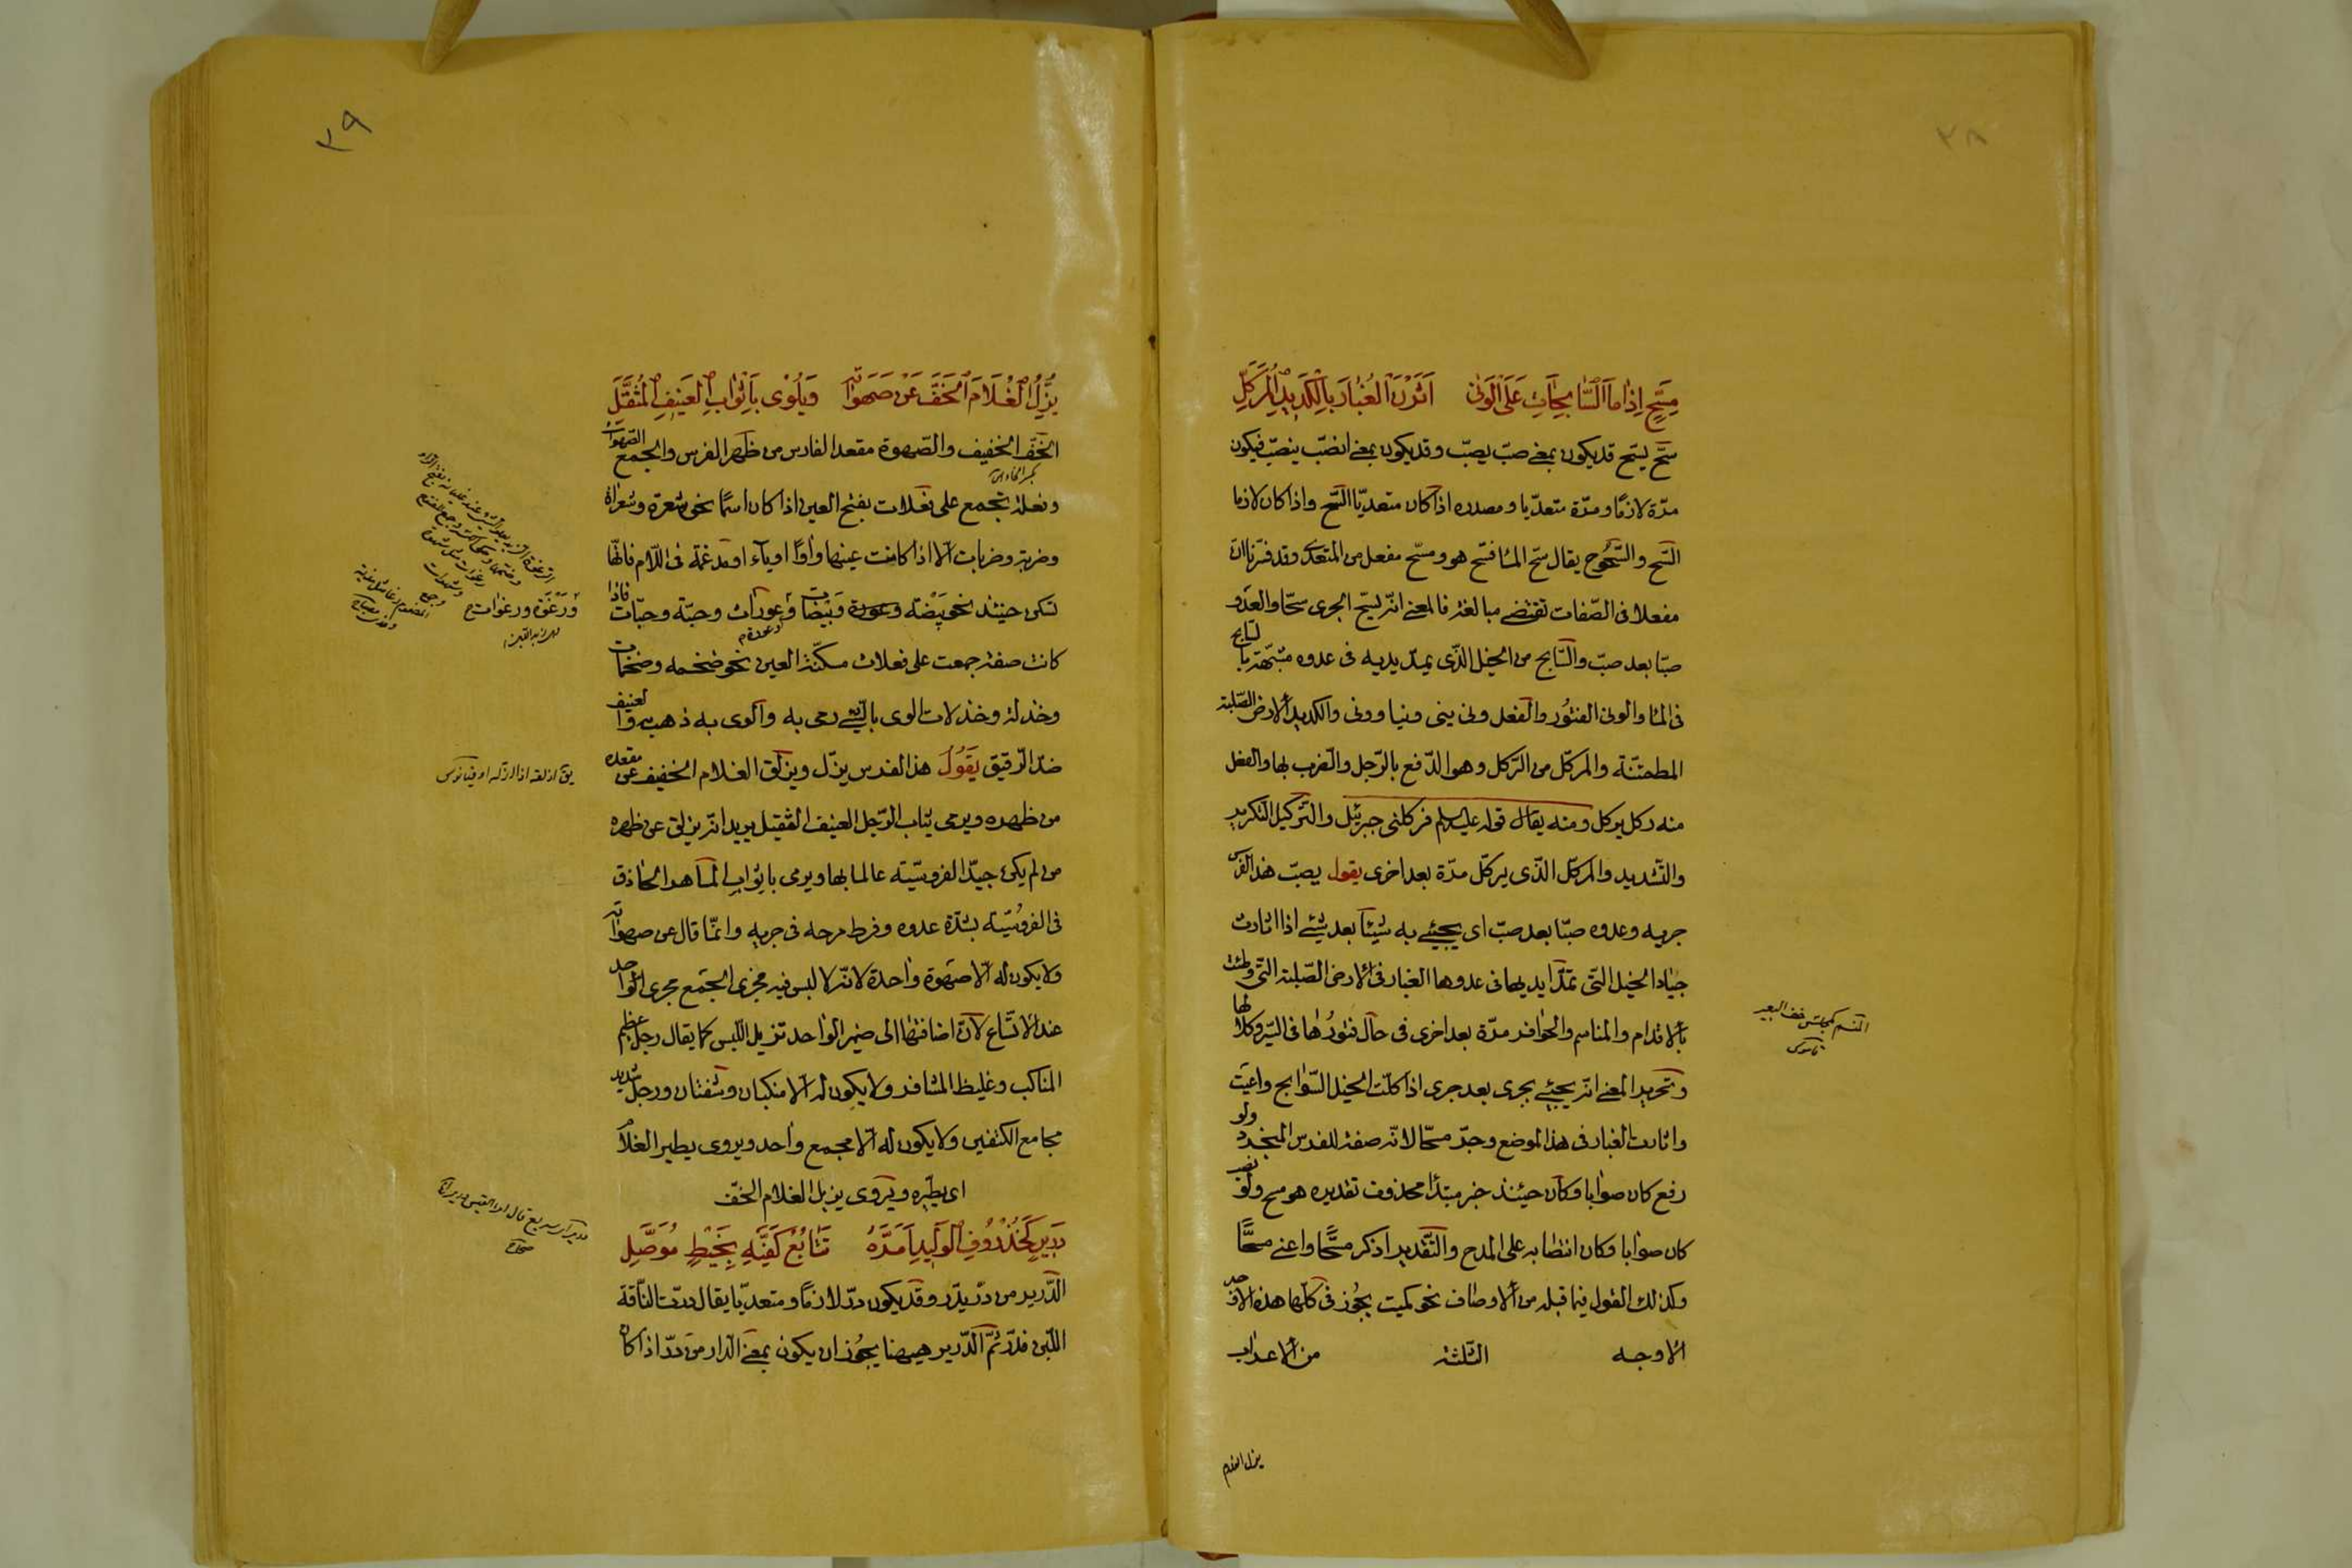 ٣٨
مِسَحٍّ اِذٰا مٰا اَلسّٰابِحٰاتِ عَلَى اَلْوَنىٰ اَثَرْنَ اَلْغُبٰارَ بِالْكَدِيدِ اَلْمُرَكَّلِ
سحّ يسحّ قد يكون بمعنى صبّ يصبّ وقد يكون بمعنى انصبّ ينصبّ فيكون
مرّة لازمًا ومرّة متعدّيا ومصدره اذا كان متعدّيا السّح واذا كان لازما
السّح والسّحُوح يقال سحّ المٰا فسّح هو ومسحّ مفعل من المتعدى وقد قررنا ان
مفعلا فى الصّفات تقتضى مبالغة فالمعنى انّه يسحّ الجرى سحّا والعَدْو
صبّا بعد صبّ والسّابح من الخيل الذّى يمدّ يديه فى عدوه مشبّهة بالسّابح
فى المٰا والونى الفتُور والفعل ونى ينى ونيا وونى والكديد الارض الصّلبة
المطمئنّة والمركّل من الرّكل وهو الدّفع بالرّجل والضرب بها والفعل
منه ركل يركل ومنه يقال قوله عليه السلام فركلنى جبرئيل والتّركيل التكرير
والتّشديد والمركّل الذّى يركّل مرّة بعد اخرى يقول يصبّ هذا الفرس
جريه وعدوه صبّا بعد صبّ اى يجيئ به شيئا بعد شيئ اذا اثارت
جيٰاد الخيل التّى تمدّ ايديها فى عدوها الغبار فى الارض الصّلبة التّى وطئت
بالاقدام والمناسم والحوافر مرّة بعد اخرى فى حال فتورُهٰا فى السّير وكلالها
وتحرير المعنى انّه يجيئ بجرى بعد جرى اذا كلّت الخيل السّوابح واعيت
واثارت الغبار فى هذا الموضع وجرّ مسحّا لانّه صفة للفرس المنجرد ولو
رفع كان صوابا وكان حينئذ خبر مبتدا محذوف تقديره هو مسح ولو نصب
كان صوٰابا وكان انتصابه على المدح والتّقدير اذكر مسحًّا واعنى مسحًّا
وكذلك القول فيما قبله من الاوصٰاف نحو كميت يجُوز فى كلّها هذه الاوجه
الاوجه الثّلثة من الاعراب
المنسم كمجلس خف البعير
قاموس
يزل الغلام
٣٩
يُزِلُّ اَلْغُلَامَ اَلْخِفَّ عَنْ صَهَوٰاتِهِ وَيُلْوٰى بِاَثْوٰابِ اَلْعَنِيفِ اَلْمُثَقَّلِ
الخفّ الخفيف والصّهوة مقعد الفارس من ظهر الفرس والجمع الصّهوات
وفعلة تجمع على فعلات بفتح العين اذا كان اسمًا نحو شعرة وشعرات
وضربة وضربات الّا اذا كانت عينها واوًا او ياء او مدغمة فى اللّام فانّها
تسكن حينئذ نحو بيضة وعورة وبيضات وعورات وحبّة وحبّات فاذا
كانت صفة جمعت على فعلات مسكّنة العين نحو ضخمه وضخمات
وخدلة وخدلات الوى بالشّيئ رمى به والوى به ذهب به والعنيف
ضدّ الرّقيق يَقُولُ هذا الفرس يزلّ ويزلق الغلام الخفيف عن مقعده
من ظهره ويرمى ثياب الرّجل العنيف الثقيل يريد انّه يزلق عن ظهره
من لم يكن جيّد الفروسيّة عالما بها ويرمى باثواب المٰاهر الحٰاذق
فى الفروسُيّة بشدّة عدوه وفرط مرحه فى جريه وانّمٰا قال عن صهواته
ولا يكون له الّا صهوة واحدة لانّه لا لبس فيه فجرى الجمع مجرى الواحد
عند الاتّساع لانّ اضافتهٰا الى ضمير الوٰاحد تزيل اللّبس كما يقال رجل عظيم
المناكب وغليظ المشافر ولا يكون له الّا منكبان وشفتان ورجل شديد
مجامع الكتفين ولا يكون له الّا مجمع واحد ويروى يطير الغلام
اى يطيره ويروى يزيل الغلام الخفّ
دَرِيرٍ كَخُذْرُوفِ اَلْوَلِيدِ اَمَرَّهُ تَتٰابُعُ كَفَّيْهِ بِخَيْطٍ مُوَصَّلِ
الدّرير من درّ يدّر وقد يكون درّ لازمًا ومتعدّيا يقال درّت النّاقة
اللّبن فدرّ ثمّ الدّرير هيهنا يجُوز ان يكون بمعنى الدّار من درّ اذا كان
ورَغْوَة ورغوات